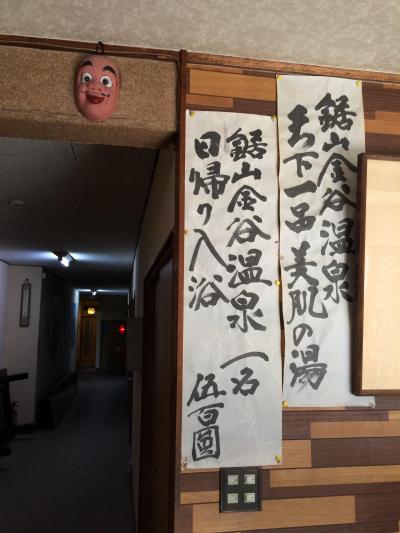 鋸山金谷温泉
天下一品美肌の湯
鋸山金谷温泉 一名
日帰り入浴 伍百圓